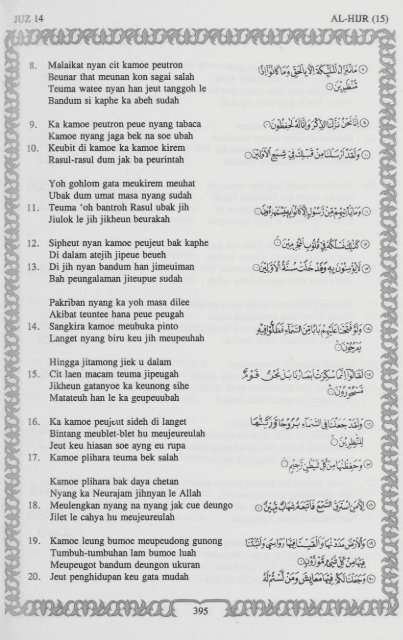 JUZ 14
AL-HIJR (15)
8. Malaikat nyan cit kamoe peutron
Beunar that meunan kon sagai salah
Teuma watee nyan han jeut tanggoh le
Bandum si kaphe ka abeh sudah
9. Ka kamoe peutron peue nyang tabaca
Kamoe nyang jaga bek na soe ubah
10. Keubit di kamoe ka kamoe kirem
Rasul-rasul dum jak ba peurintah
Yoh gohlom gata meukirem meuhat
Ubak dum umat masa nyang sudah
11. Teuma 'oh bantroh Rasul ubak jih
Jiulok le jih jikheun beurakah
12. Sipheut nyan kamoe peujeut bak kaphe
Di dalam atejih jipeue beueh
13. Di jih nyan bandum han jimeuiman
Bah peungalaman jiteupue sudah
Pakriban nyang ka yoh masa dilee
Akibat teuntee hana peue peugah
14. Sangkira kamoe meubuka pinto
Langet nyang biru keu jih meupeuhah
Hingga jitamong jiek u dalam
15. Cit laen macam teuma jipeugah
Jikheun gatanyoe ka keunong sihe
Matateuh han le ka geupeuubah
16. Ka kamoe peujeut sideh di langet
Bintang meublet-blet hu meujeureulah
Jeut keu hiasan soe ayng eu rupa
17. Kamoe plihara teuma bek salah
Kamoe plihara bak daya chetan
Nyang ka Neurajam jihnyan le Allah
18. Meulengkan nyang na nyang jak cue deungo
Jilet le cahya hu meujeureulah
19. Kamoe leung bumoe meupeudong gunong
Tumbuh-tumbuhan lam bumoe luah
Meupeugot bandum deungon ukuran
20. Jeut penghidupan keu gata mudah
مَا نُنَزِّلُ الْمَلٰٓئِكَةَ اِلَّا بِالْحَقِّ وَمَا كَانُوْٓا اِذًا
مُّنْظَرِيْنَ
اِنَّا نَحْنُ نَزَّلْنَا الذِّكْرَ وَاِنَّا لَهٗ لَحٰفِظُوْنَ
وَلَقَدْ اَرْسَلْنَا مِنْ قَبْلِكَ فِيْ شِيَعِ الْاَوَّلِيْنَ
وَمَا يَأْتِيْهِمْ مِّنْ رَّسُوْلٍ اِلَّا كَانُوْا بِهٖ يَسْتَهْزِءُوْنَ
كَذٰلِكَ نَسْلُكُهٗ فِيْ قُلُوْبِ الْمُجْرِمِيْنَ
لَا يُؤْمِنُوْنَ بِهٖ وَقَدْ خَلَتْ سُنَّةُ الْاَوَّلِيْنَ
وَلَوْ فَتَحْنَا عَلَيْهِمْ بَابًا مِّنَ السَّمَآءِ فَظَلُّوْا فِيْهِ
يَعْرُجُوْنَ
لَقَالُوْٓا اِنَّمَا سُكِّرَتْ اَبْصَارُنَا بَلْ نَحْنُ قَوْمٌ
مَّسْحُوْرُوْنَ
وَلَقَدْ جَعَلْنَا فِى السَّمَآءِ بُرُوْجًا وَّزَيَّنّٰهَا
لِلنّٰظِرِيْنَ
وَحَفِظْنٰهَا مِنْ كُلِّ شَيْطٰنٍ رَّجِيْمٍ
اِلَّا مَنِ اسْتَرَقَ السَّمْعَ فَاَتْبَعَهٗ شِهَابٌ مُّبِيْنٌ
وَالْاَرْضَ مَدَدْنٰهَا وَاَلْقَيْنَا فِيْهَا رَوَاسِيَ وَاَنْۢبَتْنَا
فِيْهَا مِنْ كُلِّ شَيْءٍ مَّوْزُوْنٍ
وَجَعَلْنَا لَكُمْ فِيْهَا مَعَايِشَ وَمَنْ لَّسْتُمْ لَهٗ
395